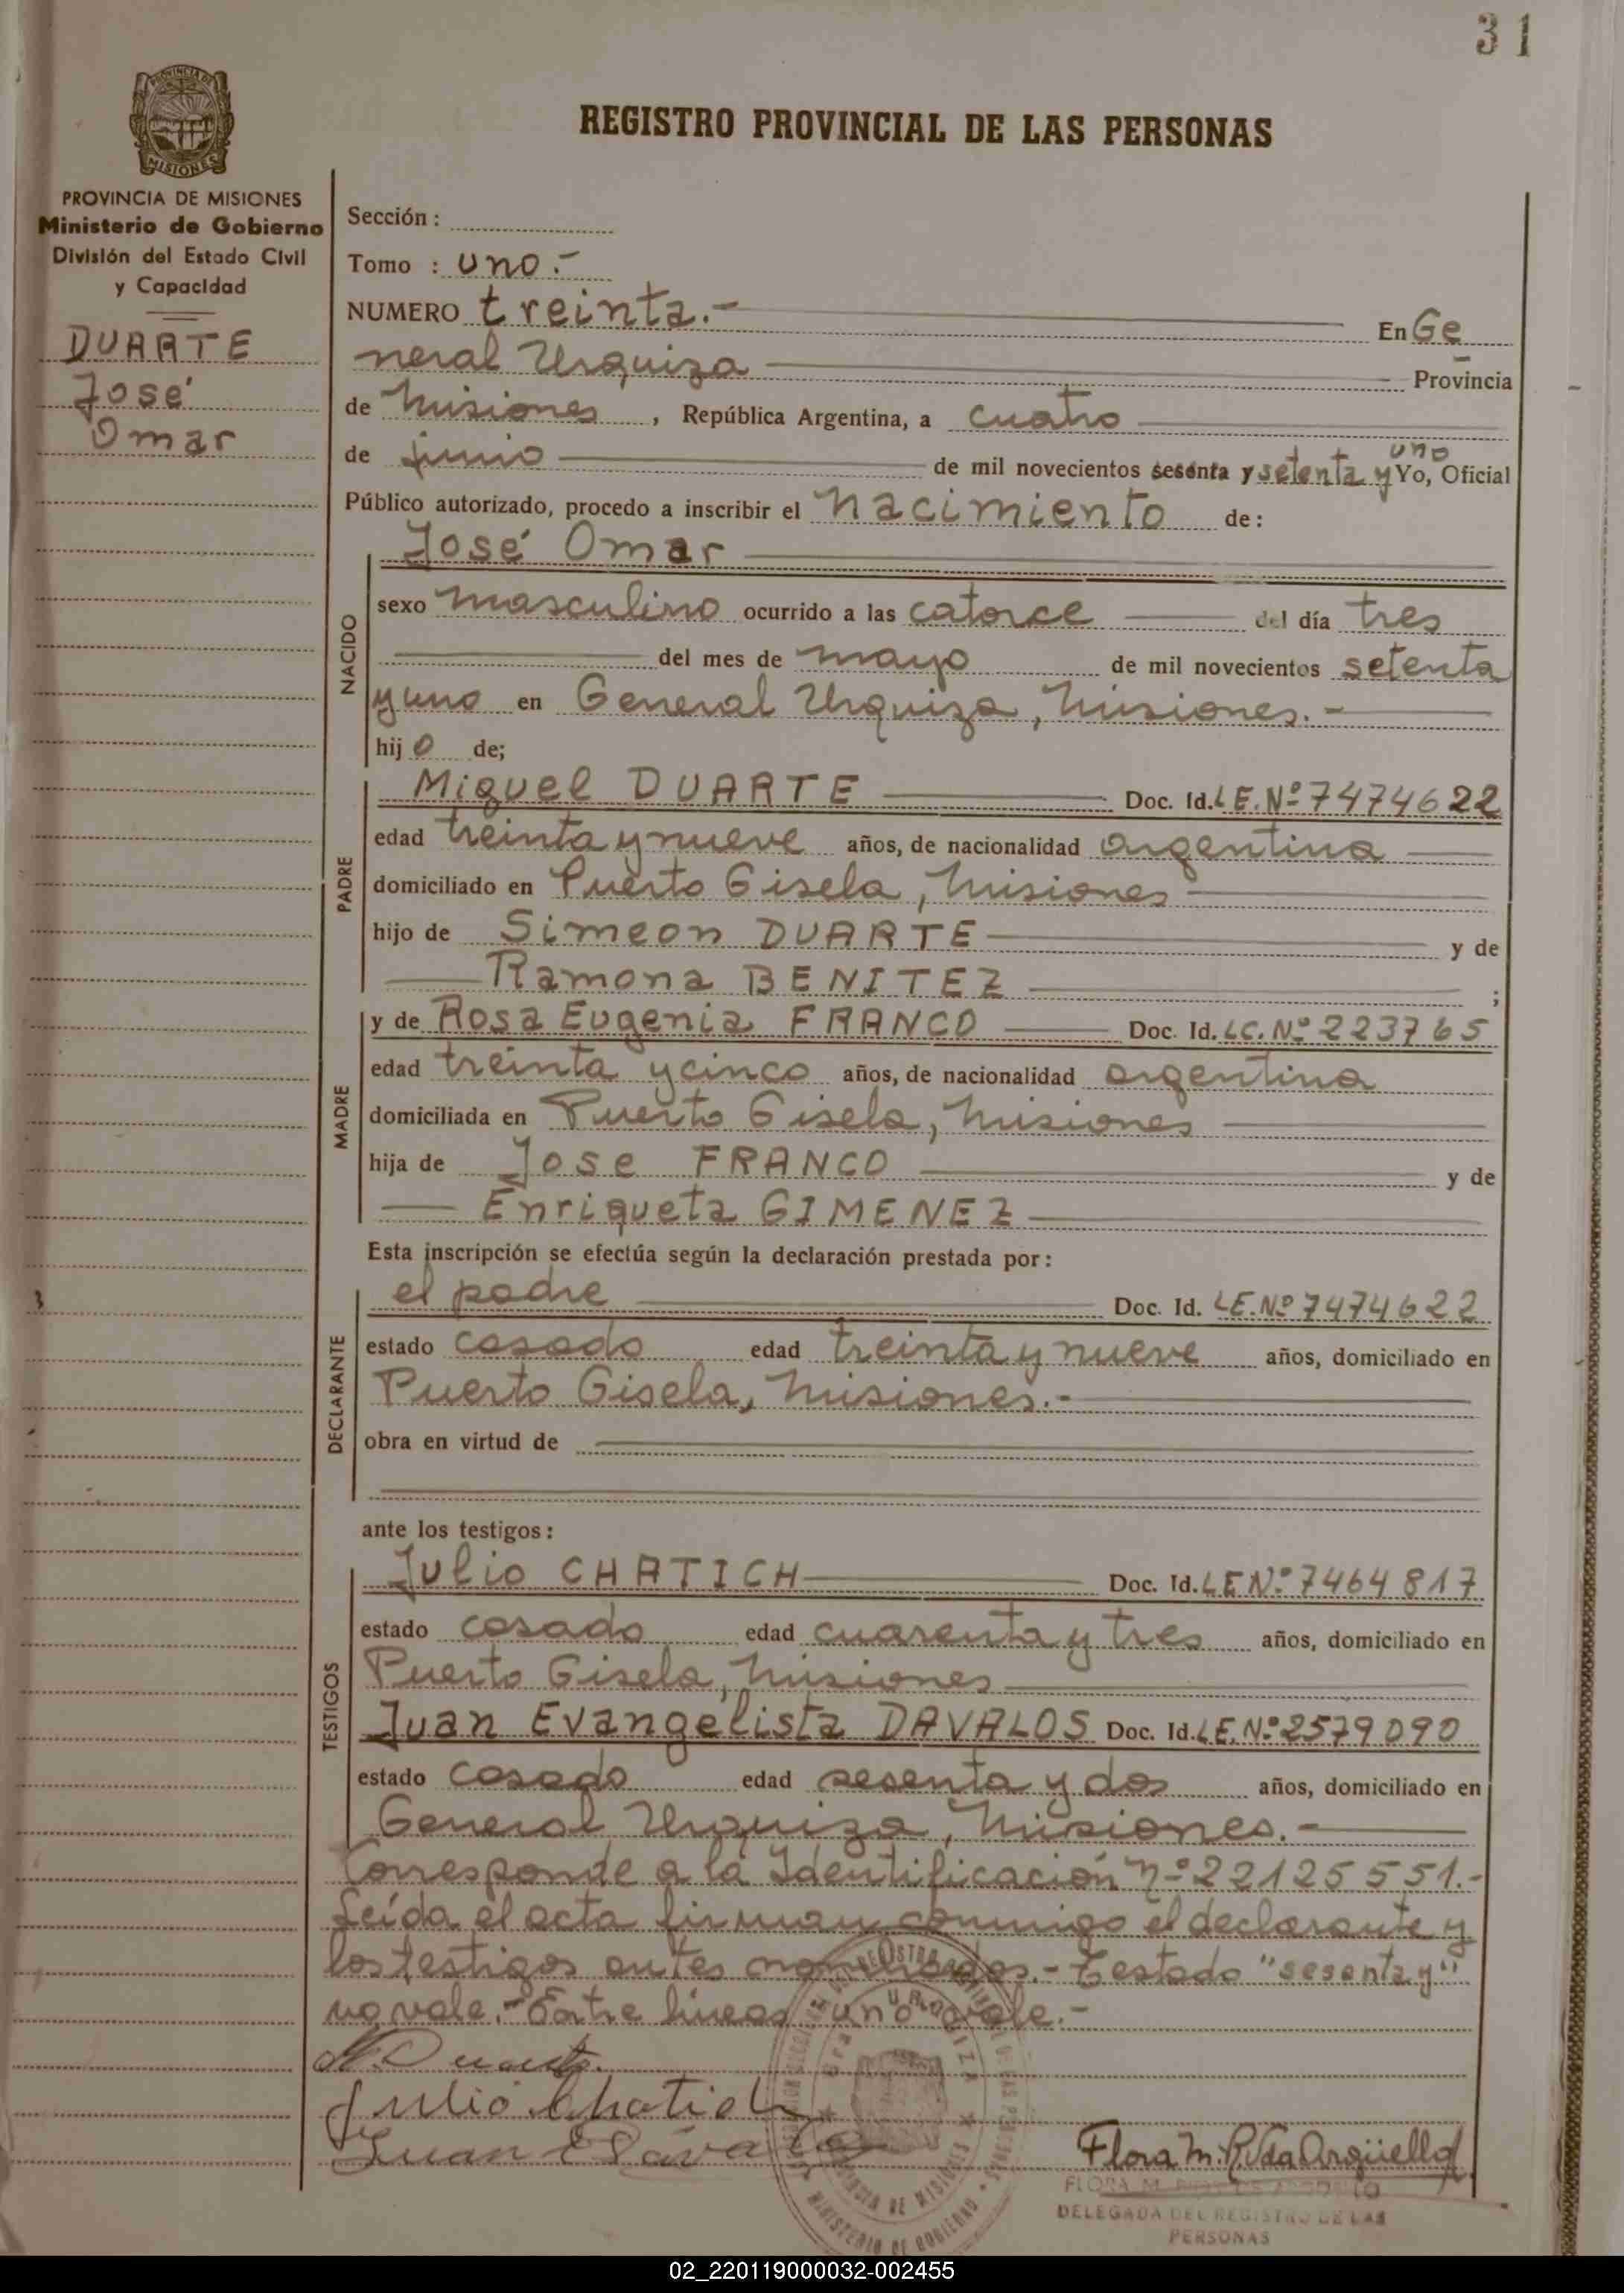 31
PROVINCIA DE
MISIONES
REGISTRO PROVINCIAL DE LAS PERSONAS
PROVINCIA DE MISIONES
Ministerio de Gobierno
División del Estado Civil
y Capacidad
DUARTE
José
Omar
Sección :
Tomo : uno.-
NUMERO treinta.- En Ge
neral Urquiza Provincia
de Misiones, República Argentina, a cuatro
uno
de junio de mil novecientos sesenta y setenta y Yo, Oficial
Público autorizado, procedo a inscribir el nacimiento de:
José Omar
NACIDO
sexo masculino ocurrido a las catorce del día tres
del mes de mayo de mil novecientos setenta
y uno en General Urquiza, Misiones.-
hijo de;
PADRE
Miguel DUARTE Doc. Id. L.E. Nº 7474622
edad treinta y nueve años, de nacionalidad argentina
domiciliado en Puerto Gisela, Misiones
hijo de Simeon DUARTE y de
Ramona BENITEZ ;
MADRE
y de Rosa Eugenia FRANCO Doc. Id. LC. Nº 223765
edad treinta y cinco años, de nacionalidad argentina
domiciliada en Puerto Gisela, Misiones
hija de Jose FRANCO y de
Enriqueta GIMENEZ
Esta inscripción se efectúa según la declaración prestada por:
DECLARANTE
el padre Doc. Id. L.E. Nº 7474622
estado casado edad treinta y nueve años, domiciliado en
Puerto Gisela, Misiones.-
obra en virtud de
ante los testigos:
TESTIGOS
Julio CHATICH Doc. Id. L.E. Nº 7464817
estado casado edad cuarenta y tres años, domiciliado en
Puerto Gisela, Misiones
Juan Evangelista DAVALOS Doc. Id. L.E. Nº 2579090
estado casado edad sesenta y dos años, domiciliado en
General Urquiza, Misiones.-
Corresponde a la Identificación Nº 22125551.-
Leída el acta firman conmigo el declarante y
los testigos antes nombrados.- Testado "sesenta y"
no vale.- Entre líneas "uno" vale.-
M Duarte.
Julio Chatich
Juan E Dávalos
Flora M. R. Vda Argüello
FLORA M.
DELEGADA DEL REGISTRO DE LAS
PERSONAS
MINISTERIO DE GOBIERNO
02_220119000032-002455